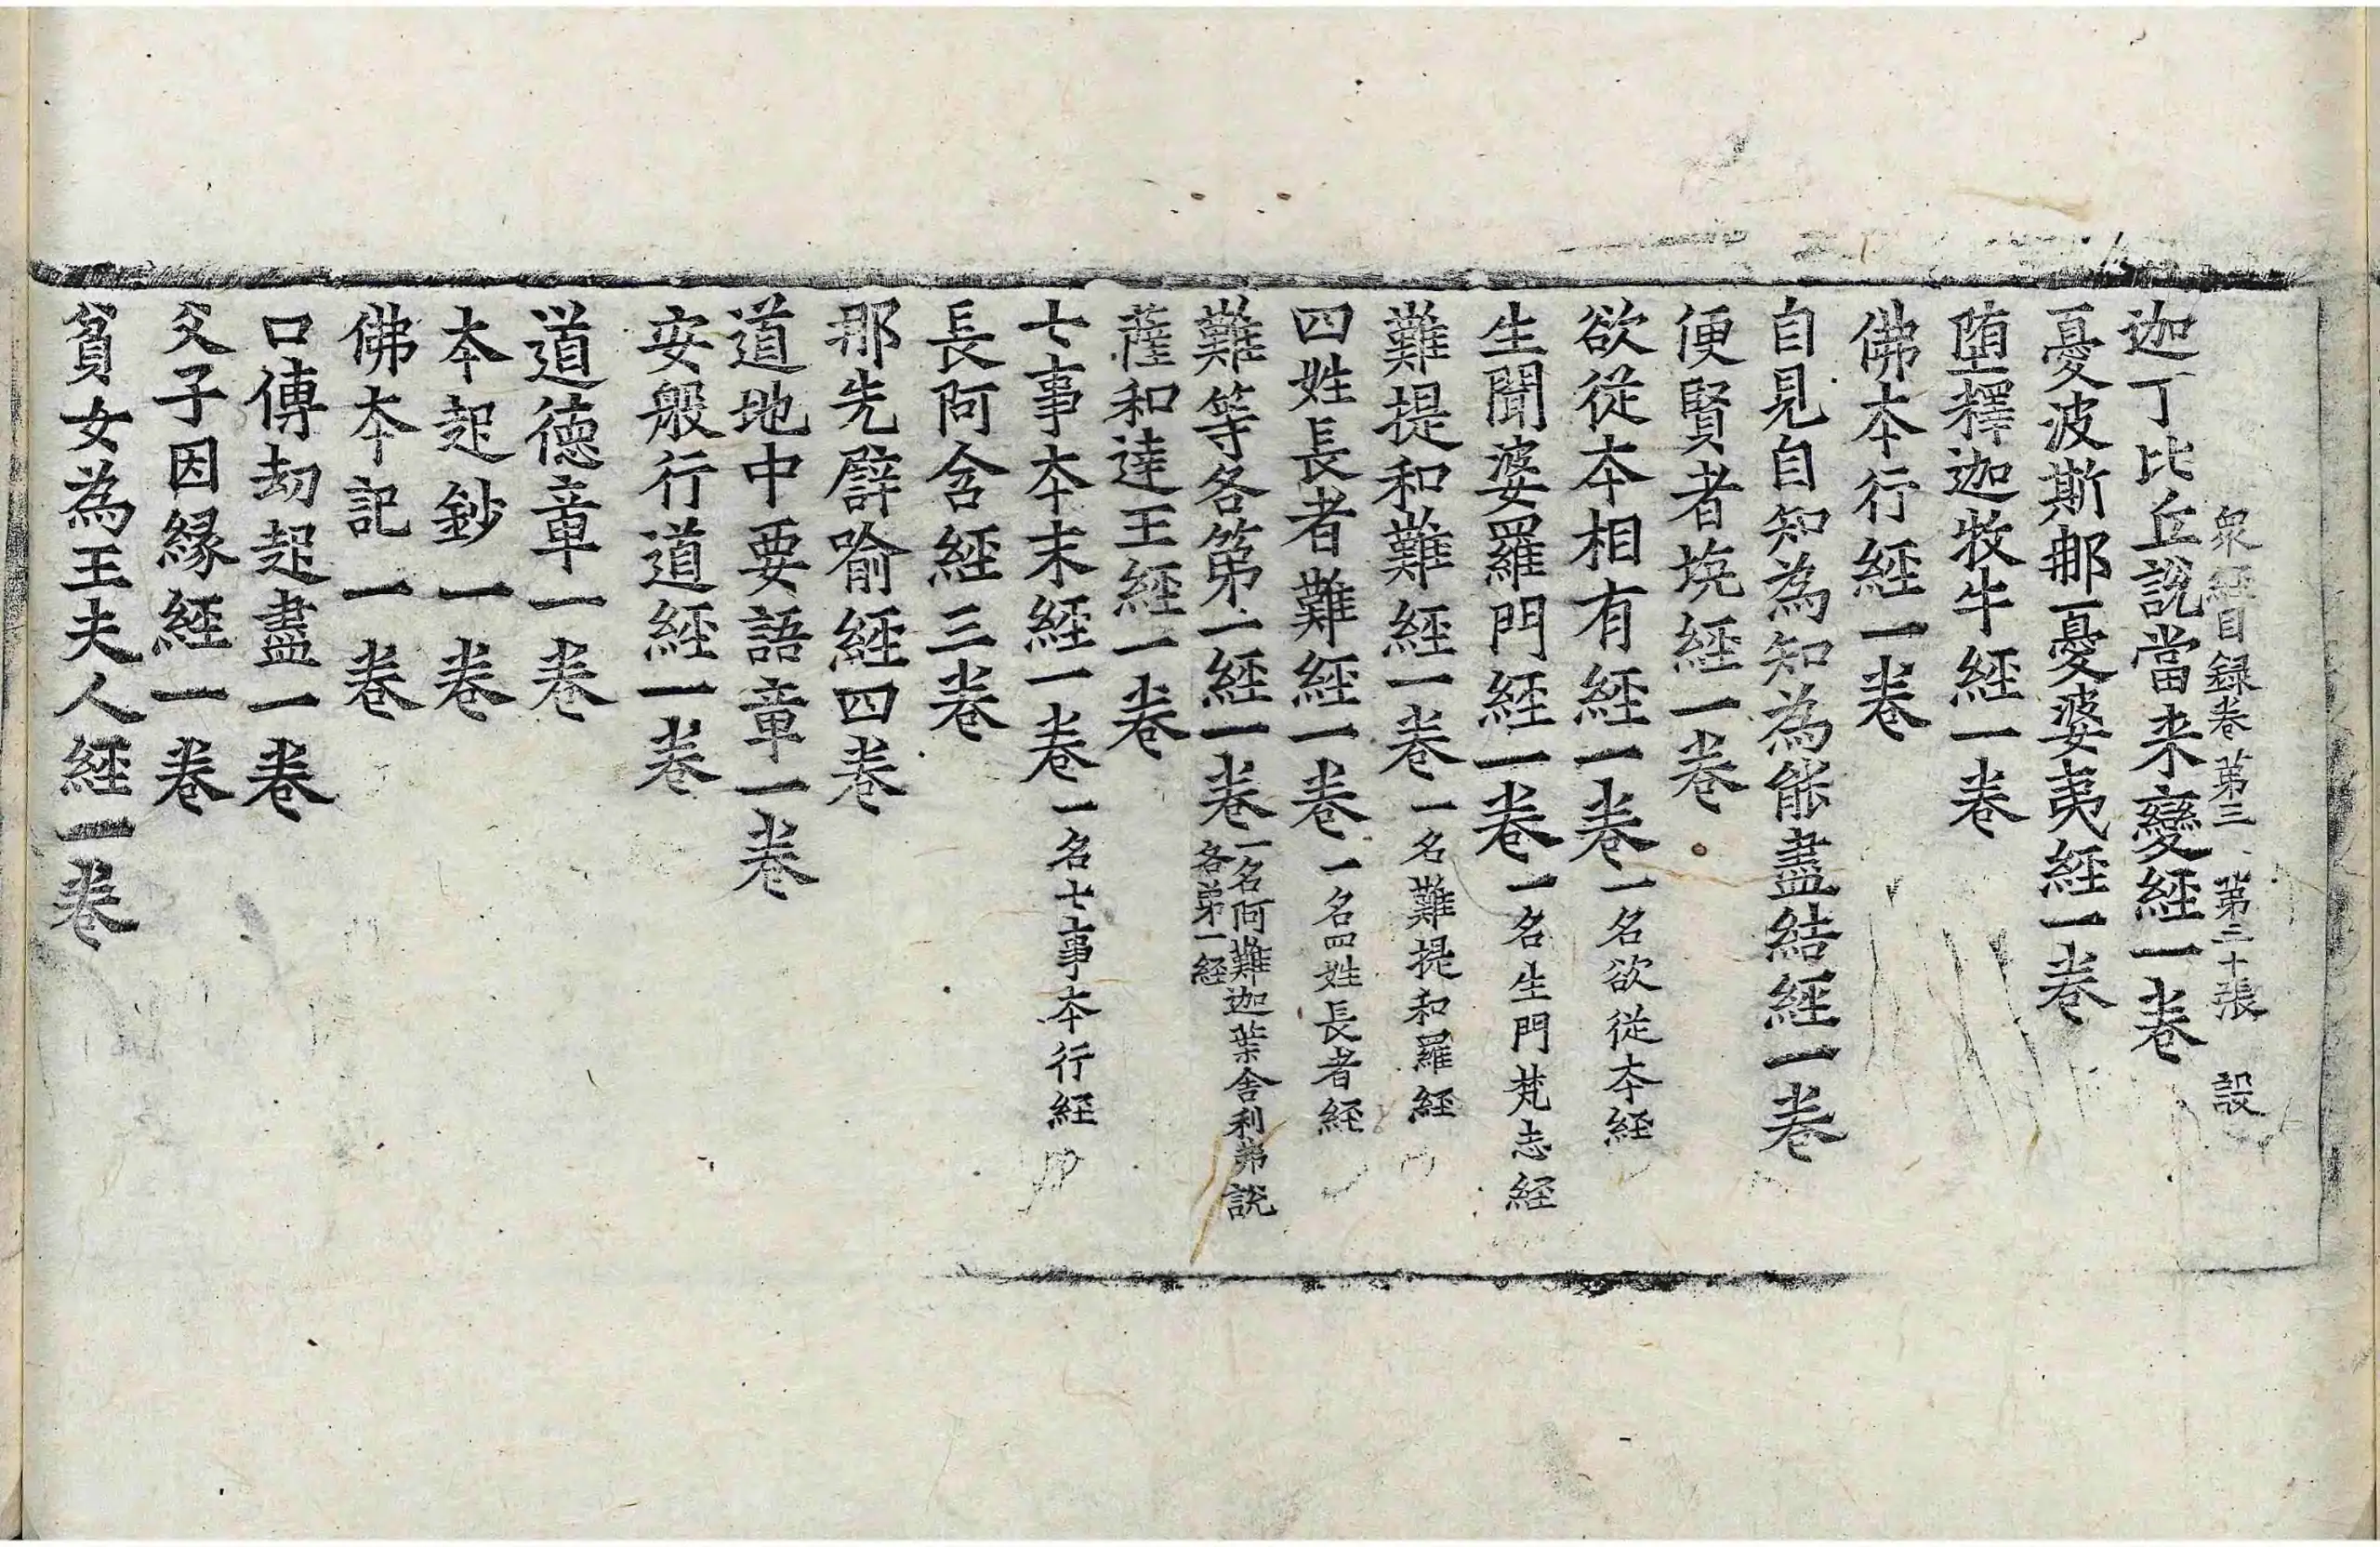 衆經目録卷第三 第二十張 設
迦丁比丘說當来變經一卷
憂波斯那憂婆夷經一卷
堕釋迦牧牛經一卷
佛本行經一卷
自見自知為知為能盡結經一卷
便賢者坑經一卷
欲從本相有經一卷 一名欲従本經
生聞婆羅門經一卷 一名生門梵志經
難提和難經一卷 一名難提和羅經
四姓長者難經一卷 一名四姓長者經
難等各第一經一卷 一名阿難迦葉舍利弗說各第一經
薩和達王經一卷
七事本末經一卷 一名七事本行經
長阿含經三卷
那先譬喻經四卷
道地中要語章一卷
安般行道經一卷
道德章一卷
本起鈔一卷
佛本記一卷
口傳劫起盡一卷
父子因縁經一卷
貧女為王夫人經一卷